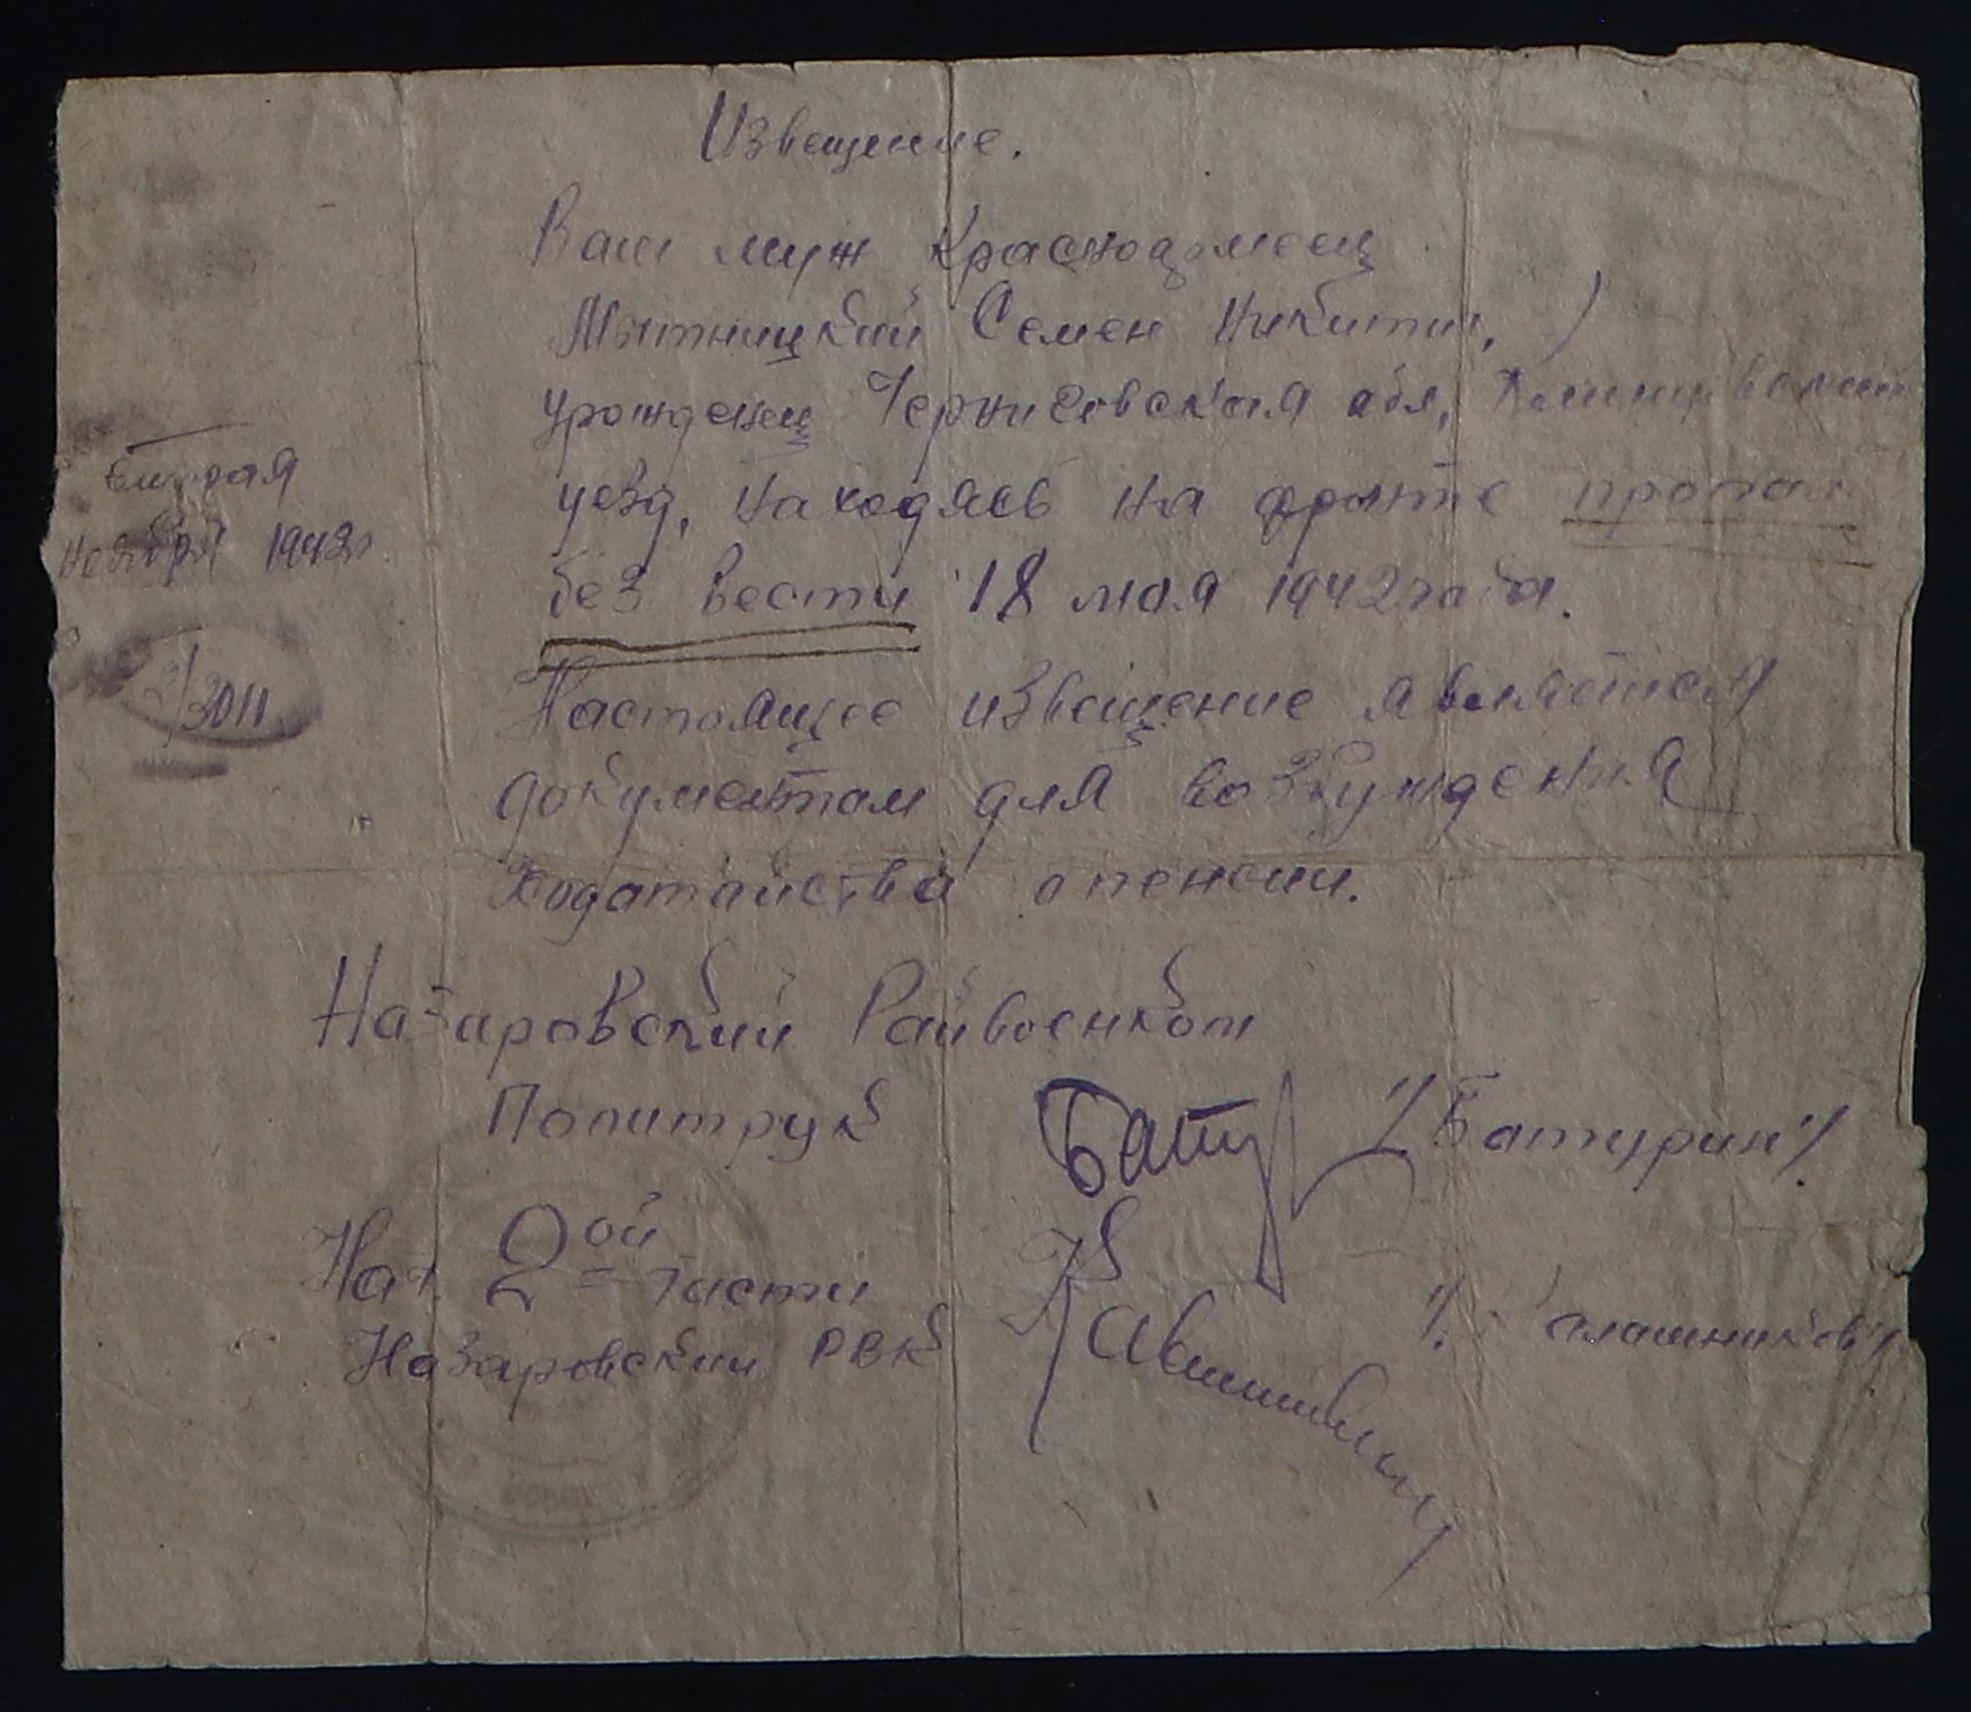 Извещение.
Ваш муж Красноармеец
Мытницкий Семен Никитич,
урожденец Черниговская абл,
уезд, находясь на фронте пропал
без вести 18 мая 1942 года.
Настоящее извещение является
документам для возбуждения
Ходатайства о пенсии.
Вторая
ноября 1942г.
2/3011
Назаровский Райвоенком
Политрук Бату /Батурин/.
Нач. 2ой части
Назаровский РВК /Калашников/